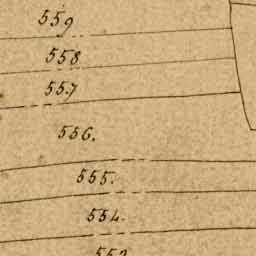 559
558
557
556.
555.
554.
553